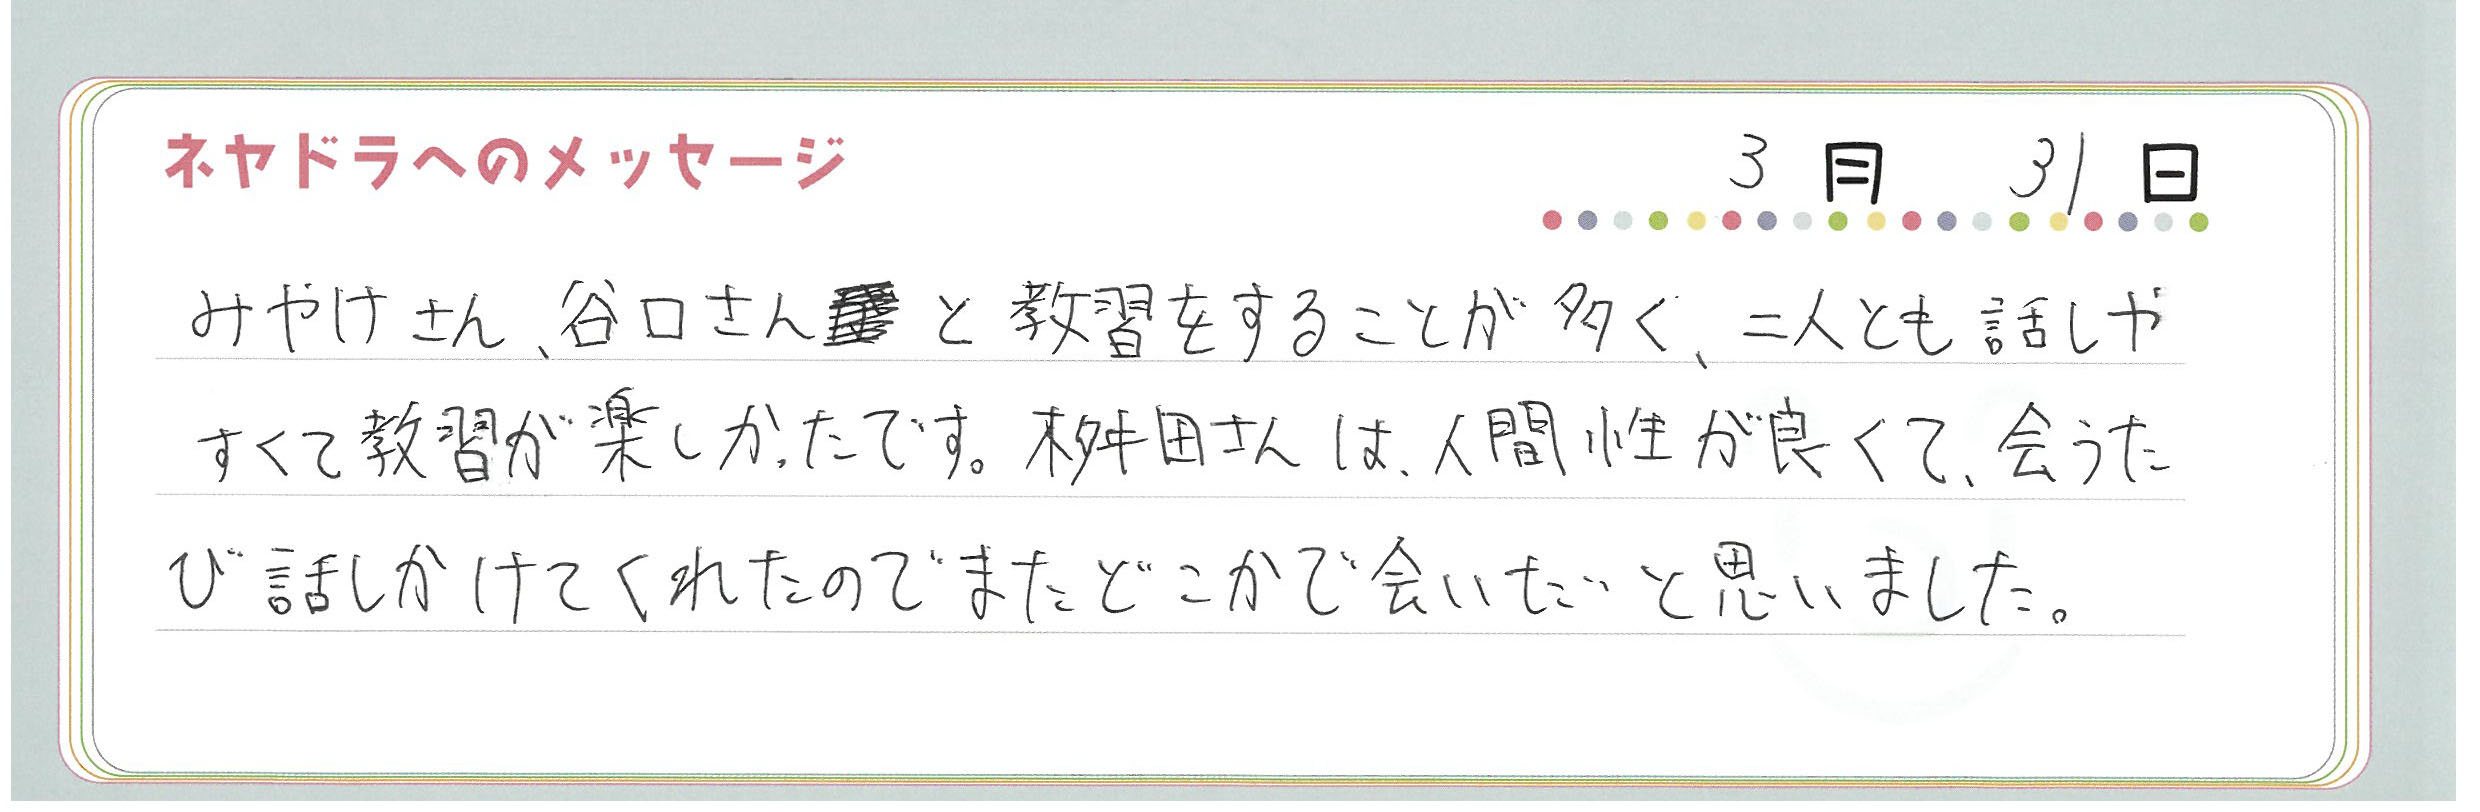 ネヤドラへのメッセージ
3月 31日
みやけさん、谷口さんと教習をすることが多く、二人とも話しや
すくて教習が楽しかったです。桝田さんは、人間性が良くて、会うた
び話しかけてくれたのでまたどこかで会いたいと思いました。